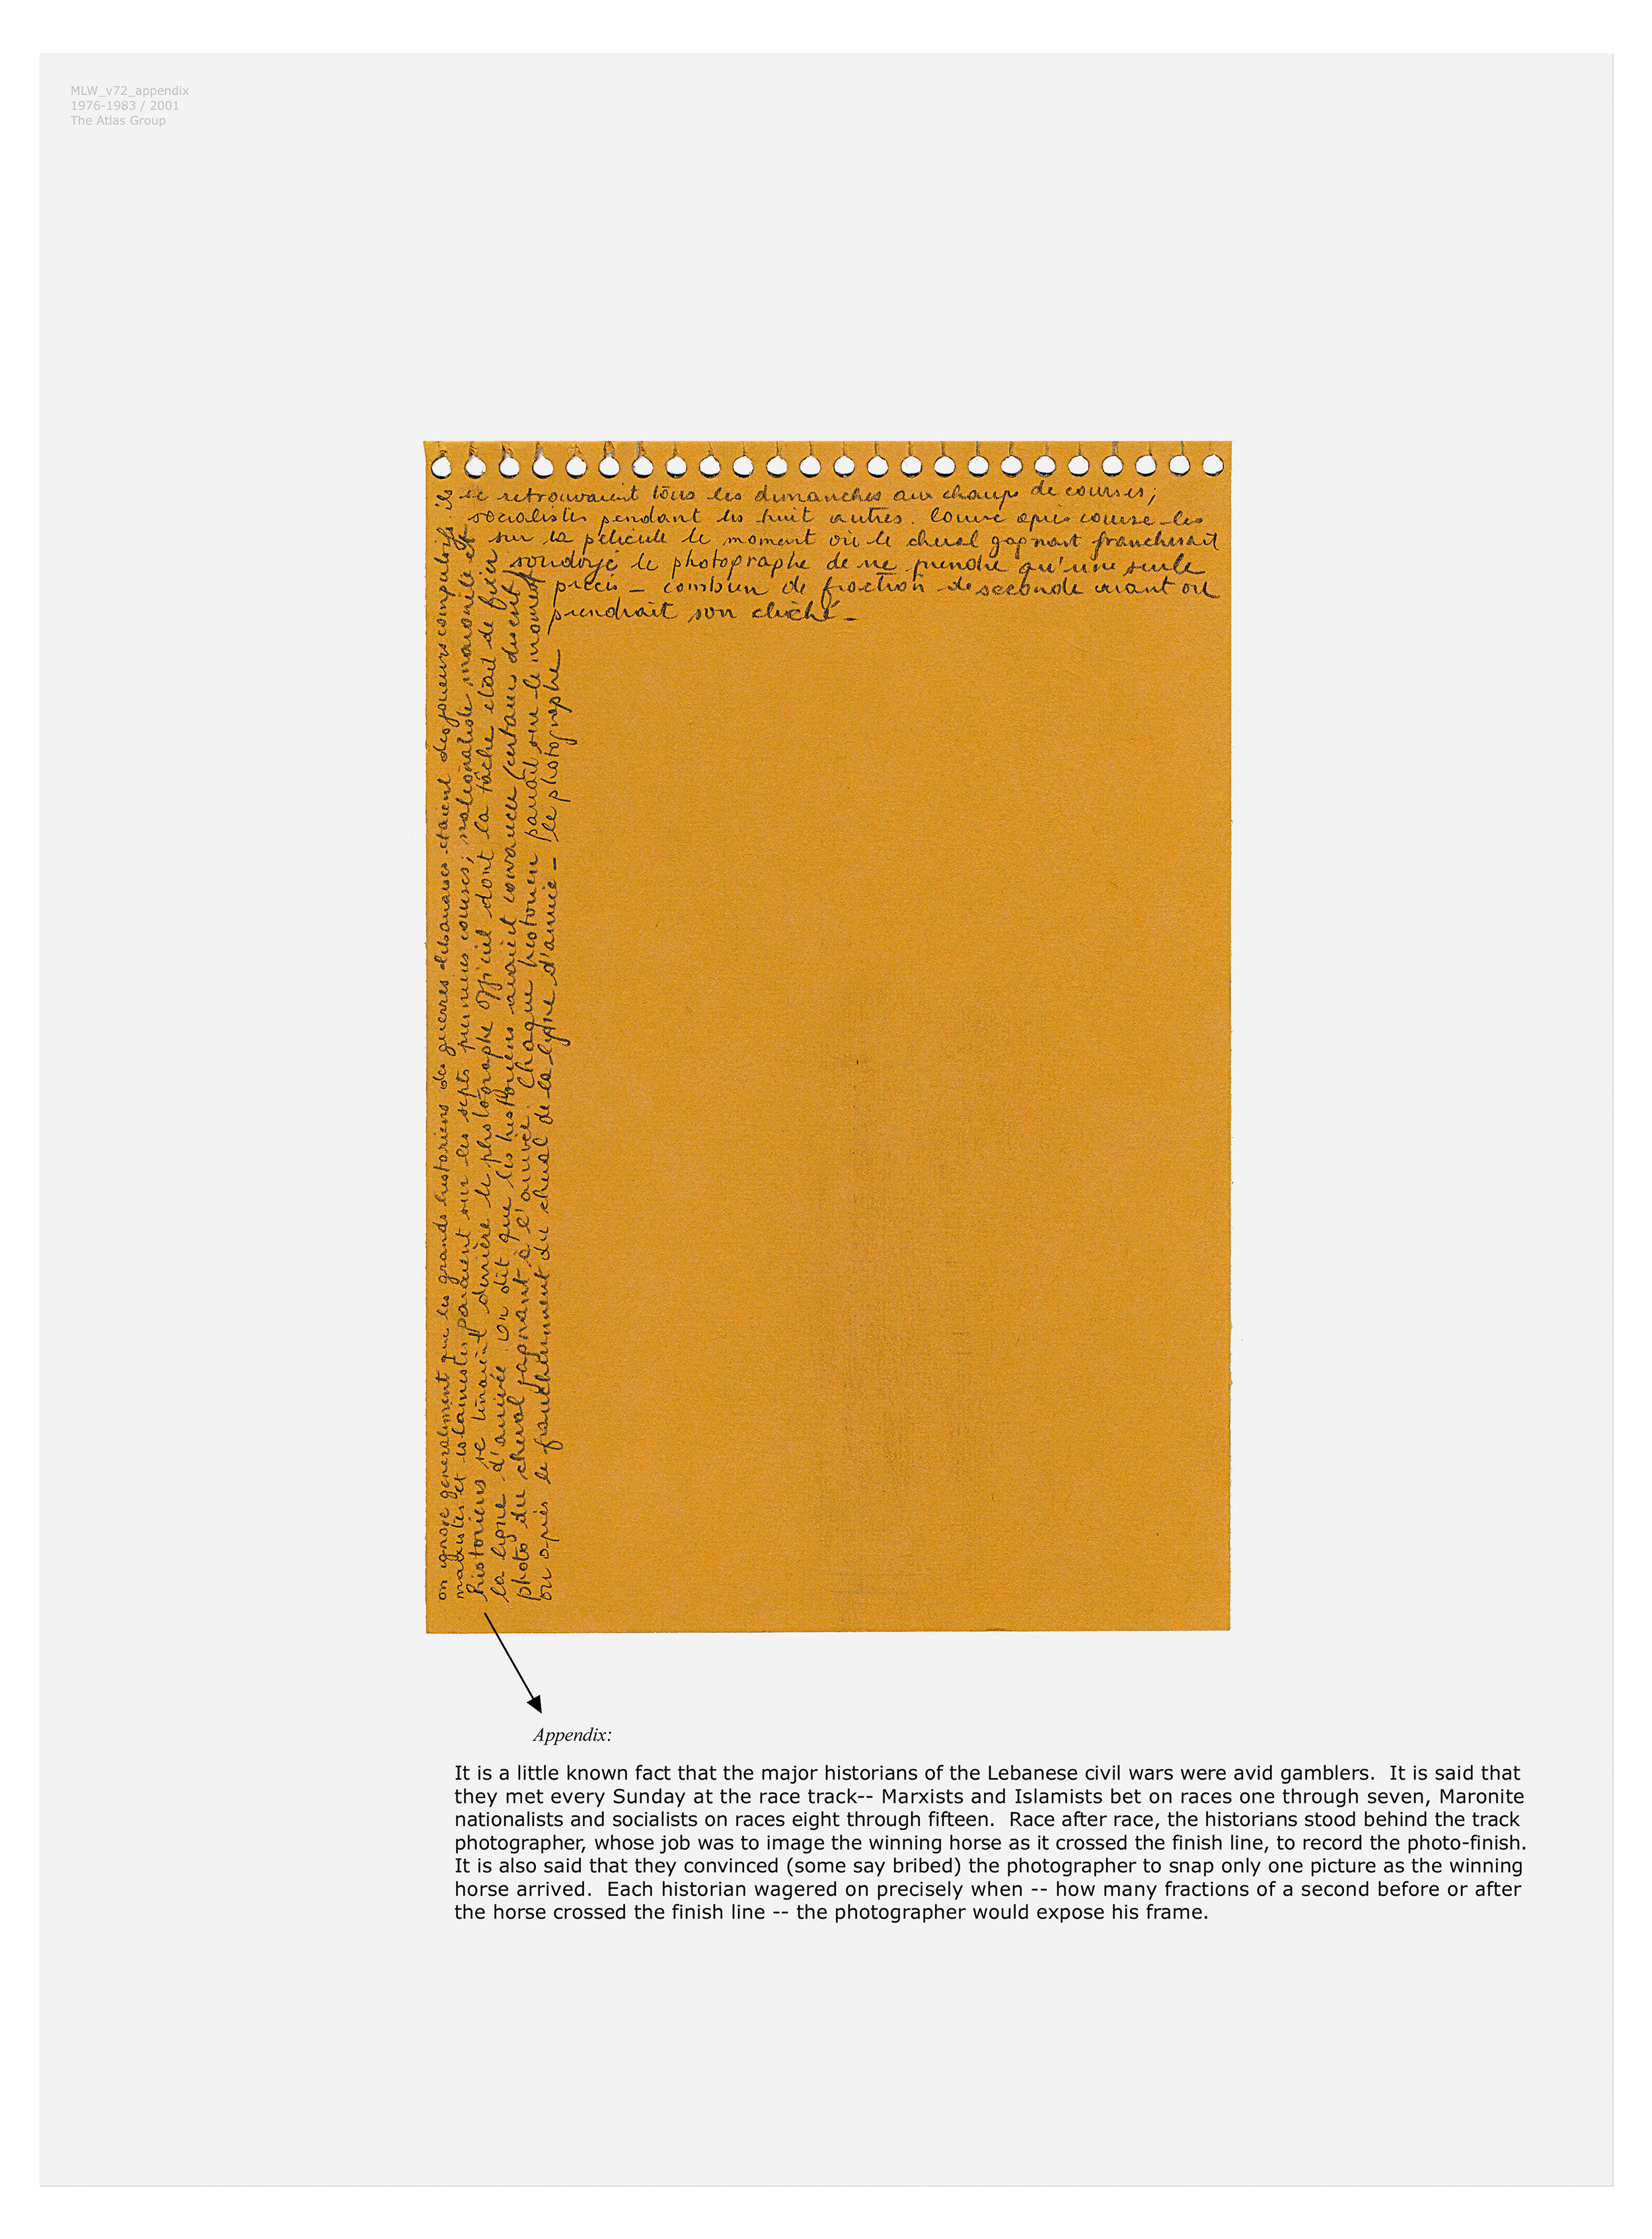 MLW_v72_appendix
1976-1983 / 2001
The Atlas Group
on ignore generaliment que les grands historiens des guerres libanaises etaient des joueurs compulsifs ils
se retrouvaient tous les dimanches aux champs de courses;
marxistes et islamistes pariaient sur les septs premieres courses; nationaliste maronite et
socialistes pendant les huit autres. Course apres course les
historiens se tenaient derrière le photographe officiel dont la tâche etait de fixer
sur la pelicule le moment où le cheval gagnant franchissait
la ligne d'arrivée. On dit que les historiens avaient convaincu (certains disent)
soudoyé le photographe de ne prendre qu'une seule
photo du cheval gagnant à l'arrivée. Chaque historien pariait sur le moment
précis - combien de fraction de seconde avant ou
ou après le franchissement du cheval de la ligne d'arrivée - le photographe
prendrait son cliché -
Appendix:
It is a little known fact that the major historians of the Lebanese civil wars were avid gamblers. It is said that
they met every Sunday at the race track-- Marxists and Islamists bet on races one through seven, Maronite
nationalists and socialists on races eight through fifteen. Race after race, the historians stood behind the track
photographer, whose job was to image the winning horse as it crossed the finish line, to record the photo-finish.
It is also said that they convinced (some say bribed) the photographer to snap only one picture as the winning
horse arrived. Each historian wagered on precisely when -- how many fractions of a second before or after
the horse crossed the finish line -- the photographer would expose his frame.